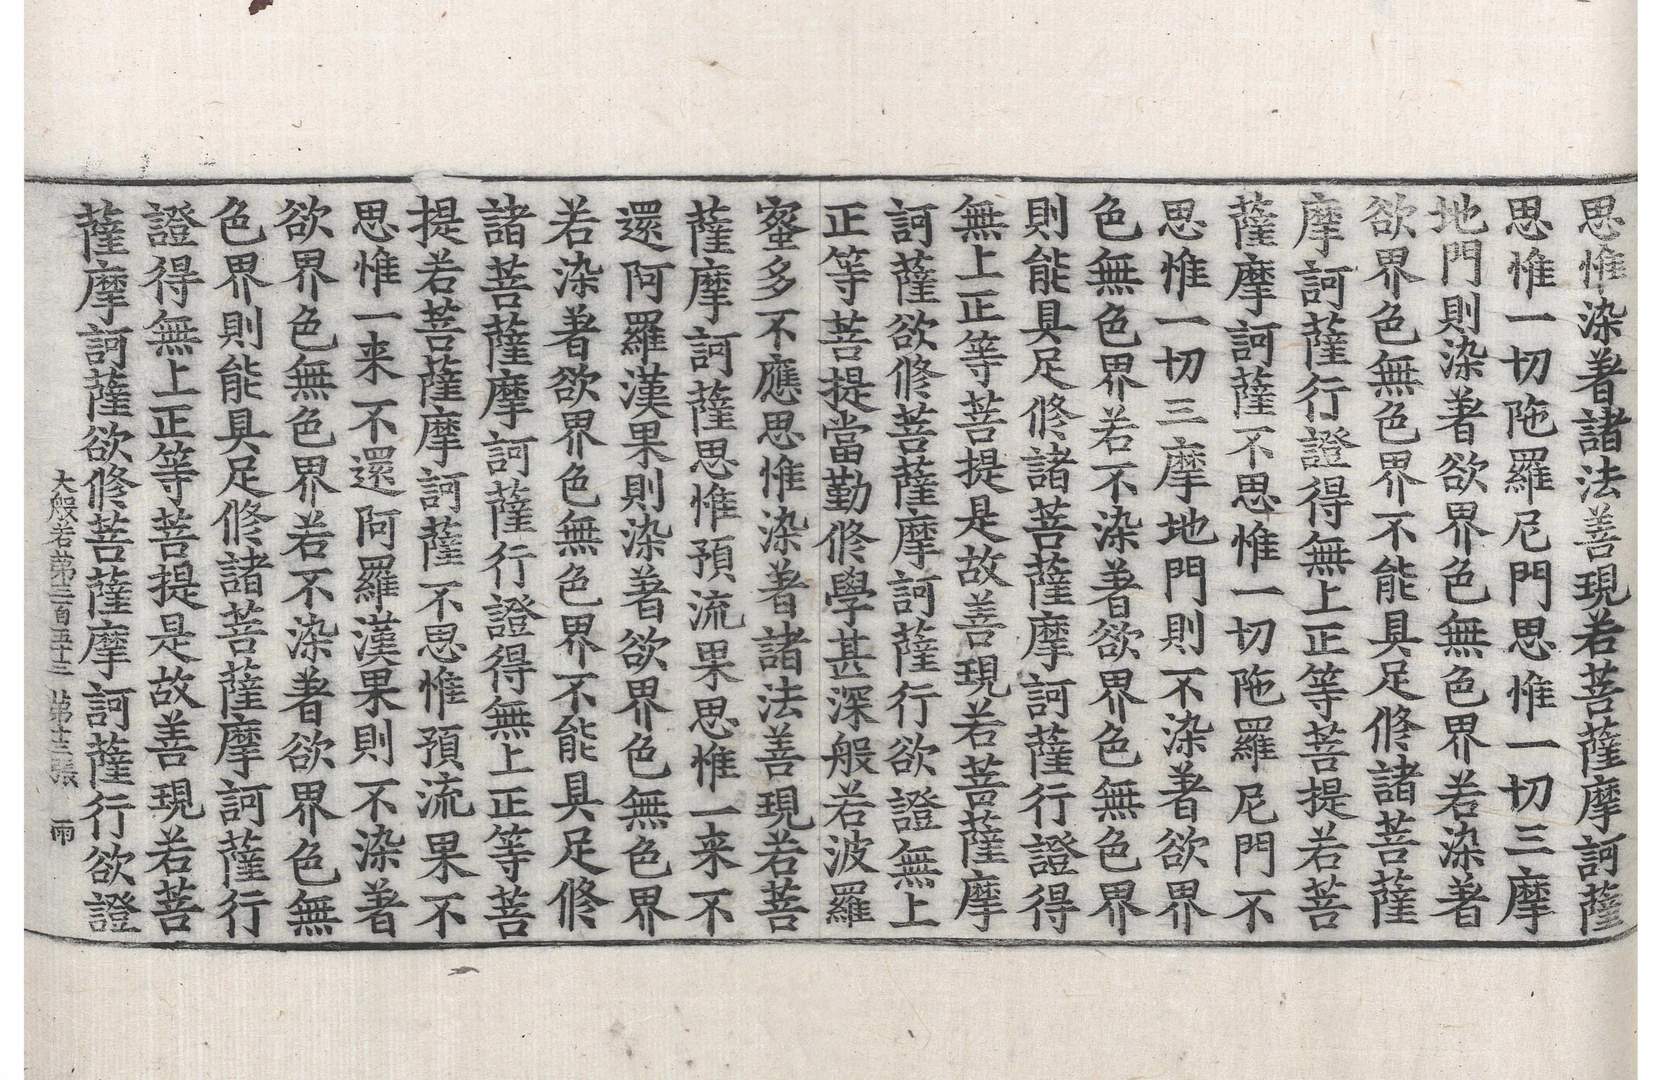 思惟染著諸法善現若菩薩摩訶薩
思惟一切陁羅尼門思惟一切三摩
地門則染著欲界色無色界若染著
欲界色無色界不能具足修諸菩薩
摩訶薩行證得無上正等菩提若菩
薩摩訶薩不思惟一切陁羅尼門不
思惟一切三摩地門則不染著欲界
色無色界若不染著欲界色無色界
則能具足修諸菩薩摩訶薩行證得
無上正等菩提是故善現若菩薩摩
訶薩欲修菩薩摩訶薩行欲證無上
正等菩提當勤修學甚深般若波羅
蜜多不應思惟染著諸法善現若菩
薩摩訶薩思惟預流果思惟一来不
還阿羅漢果則染著欲界色無色界
若染著欲界色無色界不能具足修
諸菩薩摩訶薩行證得無上正等菩
提若菩薩摩訶薩不思惟預流果不
思惟一来不還阿羅漢果則不染著
欲界色無色界若不染著欲界色無
色界則能具足修諸菩薩摩訶薩行
證得無上正等菩提是故善現若菩
薩摩訶薩欲修菩薩摩訶薩行欲證
大般若第三百五十三 第十三張 雨